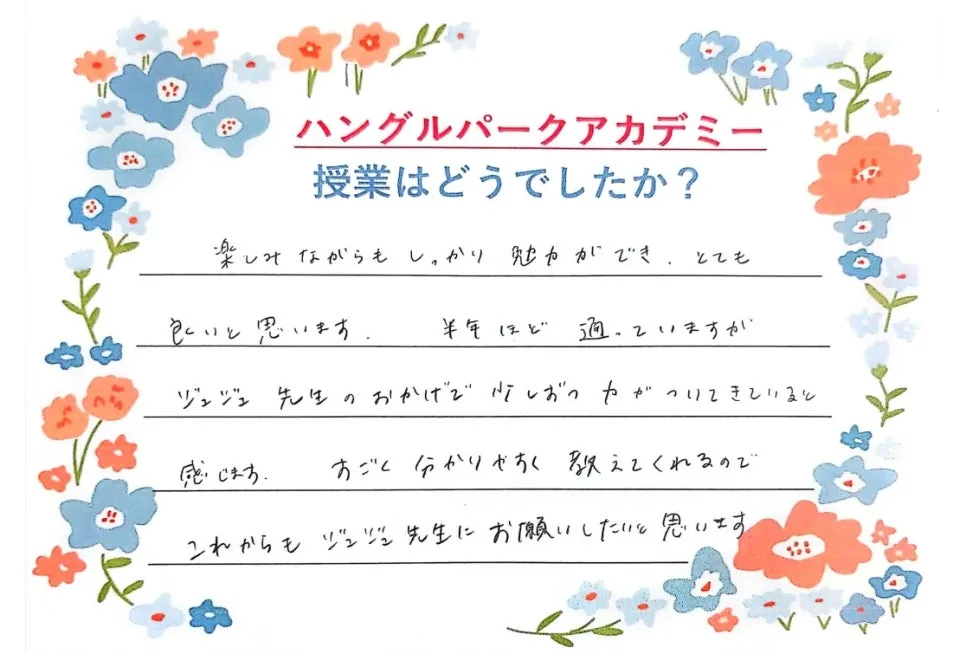 ハングルパークアカデミー
授業はどうでしたか？
楽しみながらもしっかり勉強ができ、とても
良いと思います。 半年ほど 通っていますが
ジュジュ先生のおかげで 少しずつ力がついてきていると
感じます。 すごく分かりやすく教えてくれるので
これからも ジュジュ先生にお願いしたいと思います